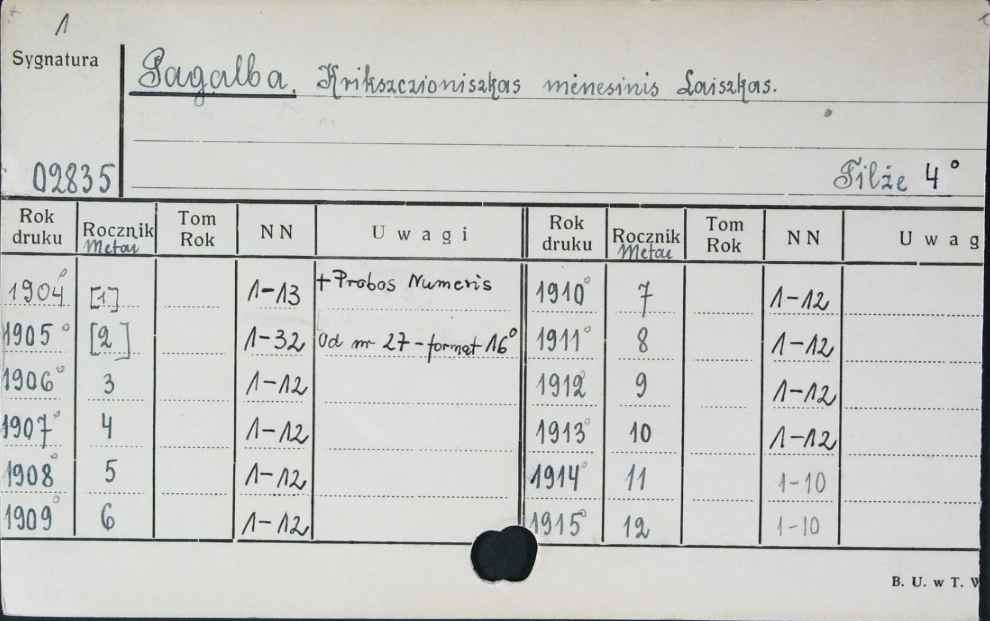 1
Sygnatura
Pagalba. Krikszczioniszkas mėnesinis Laiszkas.
02835
Tilże 4°
Rok druku Rocznik Metai Tom Rok NN Uwagi Rok druku Rocznik Metai Tom Rok NN Uwag
1904° [1] 1-13 + Probos Numeris 1910° 7 1-12
1905° [2] 1-32 Od nr 27 - format 16° 1911° 8 1-12
1906° 3 1-12 1912° 9 1-12
1907° 4 1-12 1913° 10 1-12
1908° 5 1-12 1914° 11 1-10
1909° 6 1-12 1915° 12 1-10
B. U. w T.